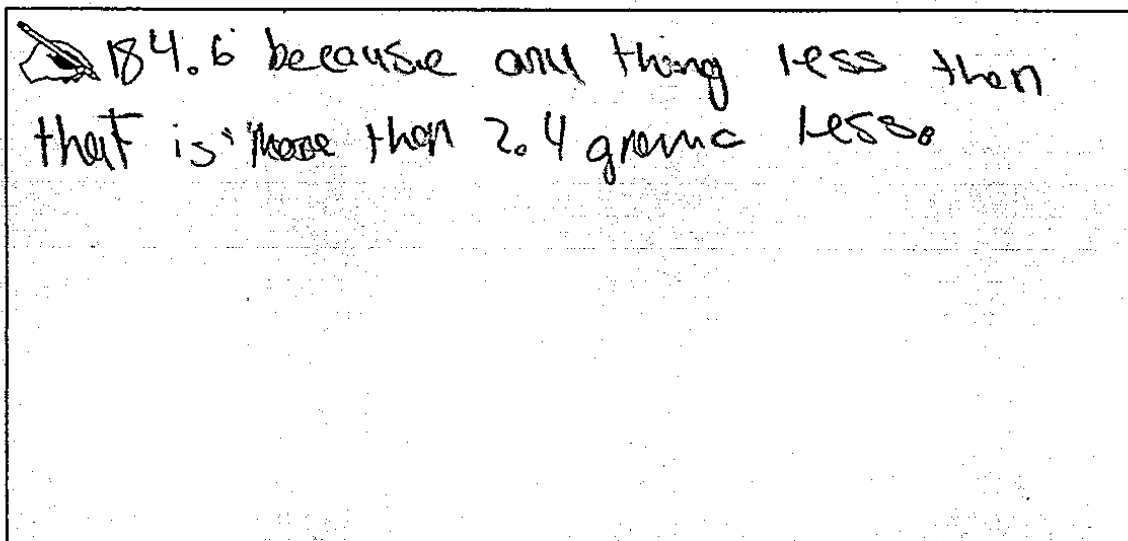 184.6 because any thing less then
that is more then 2.4 grams less.